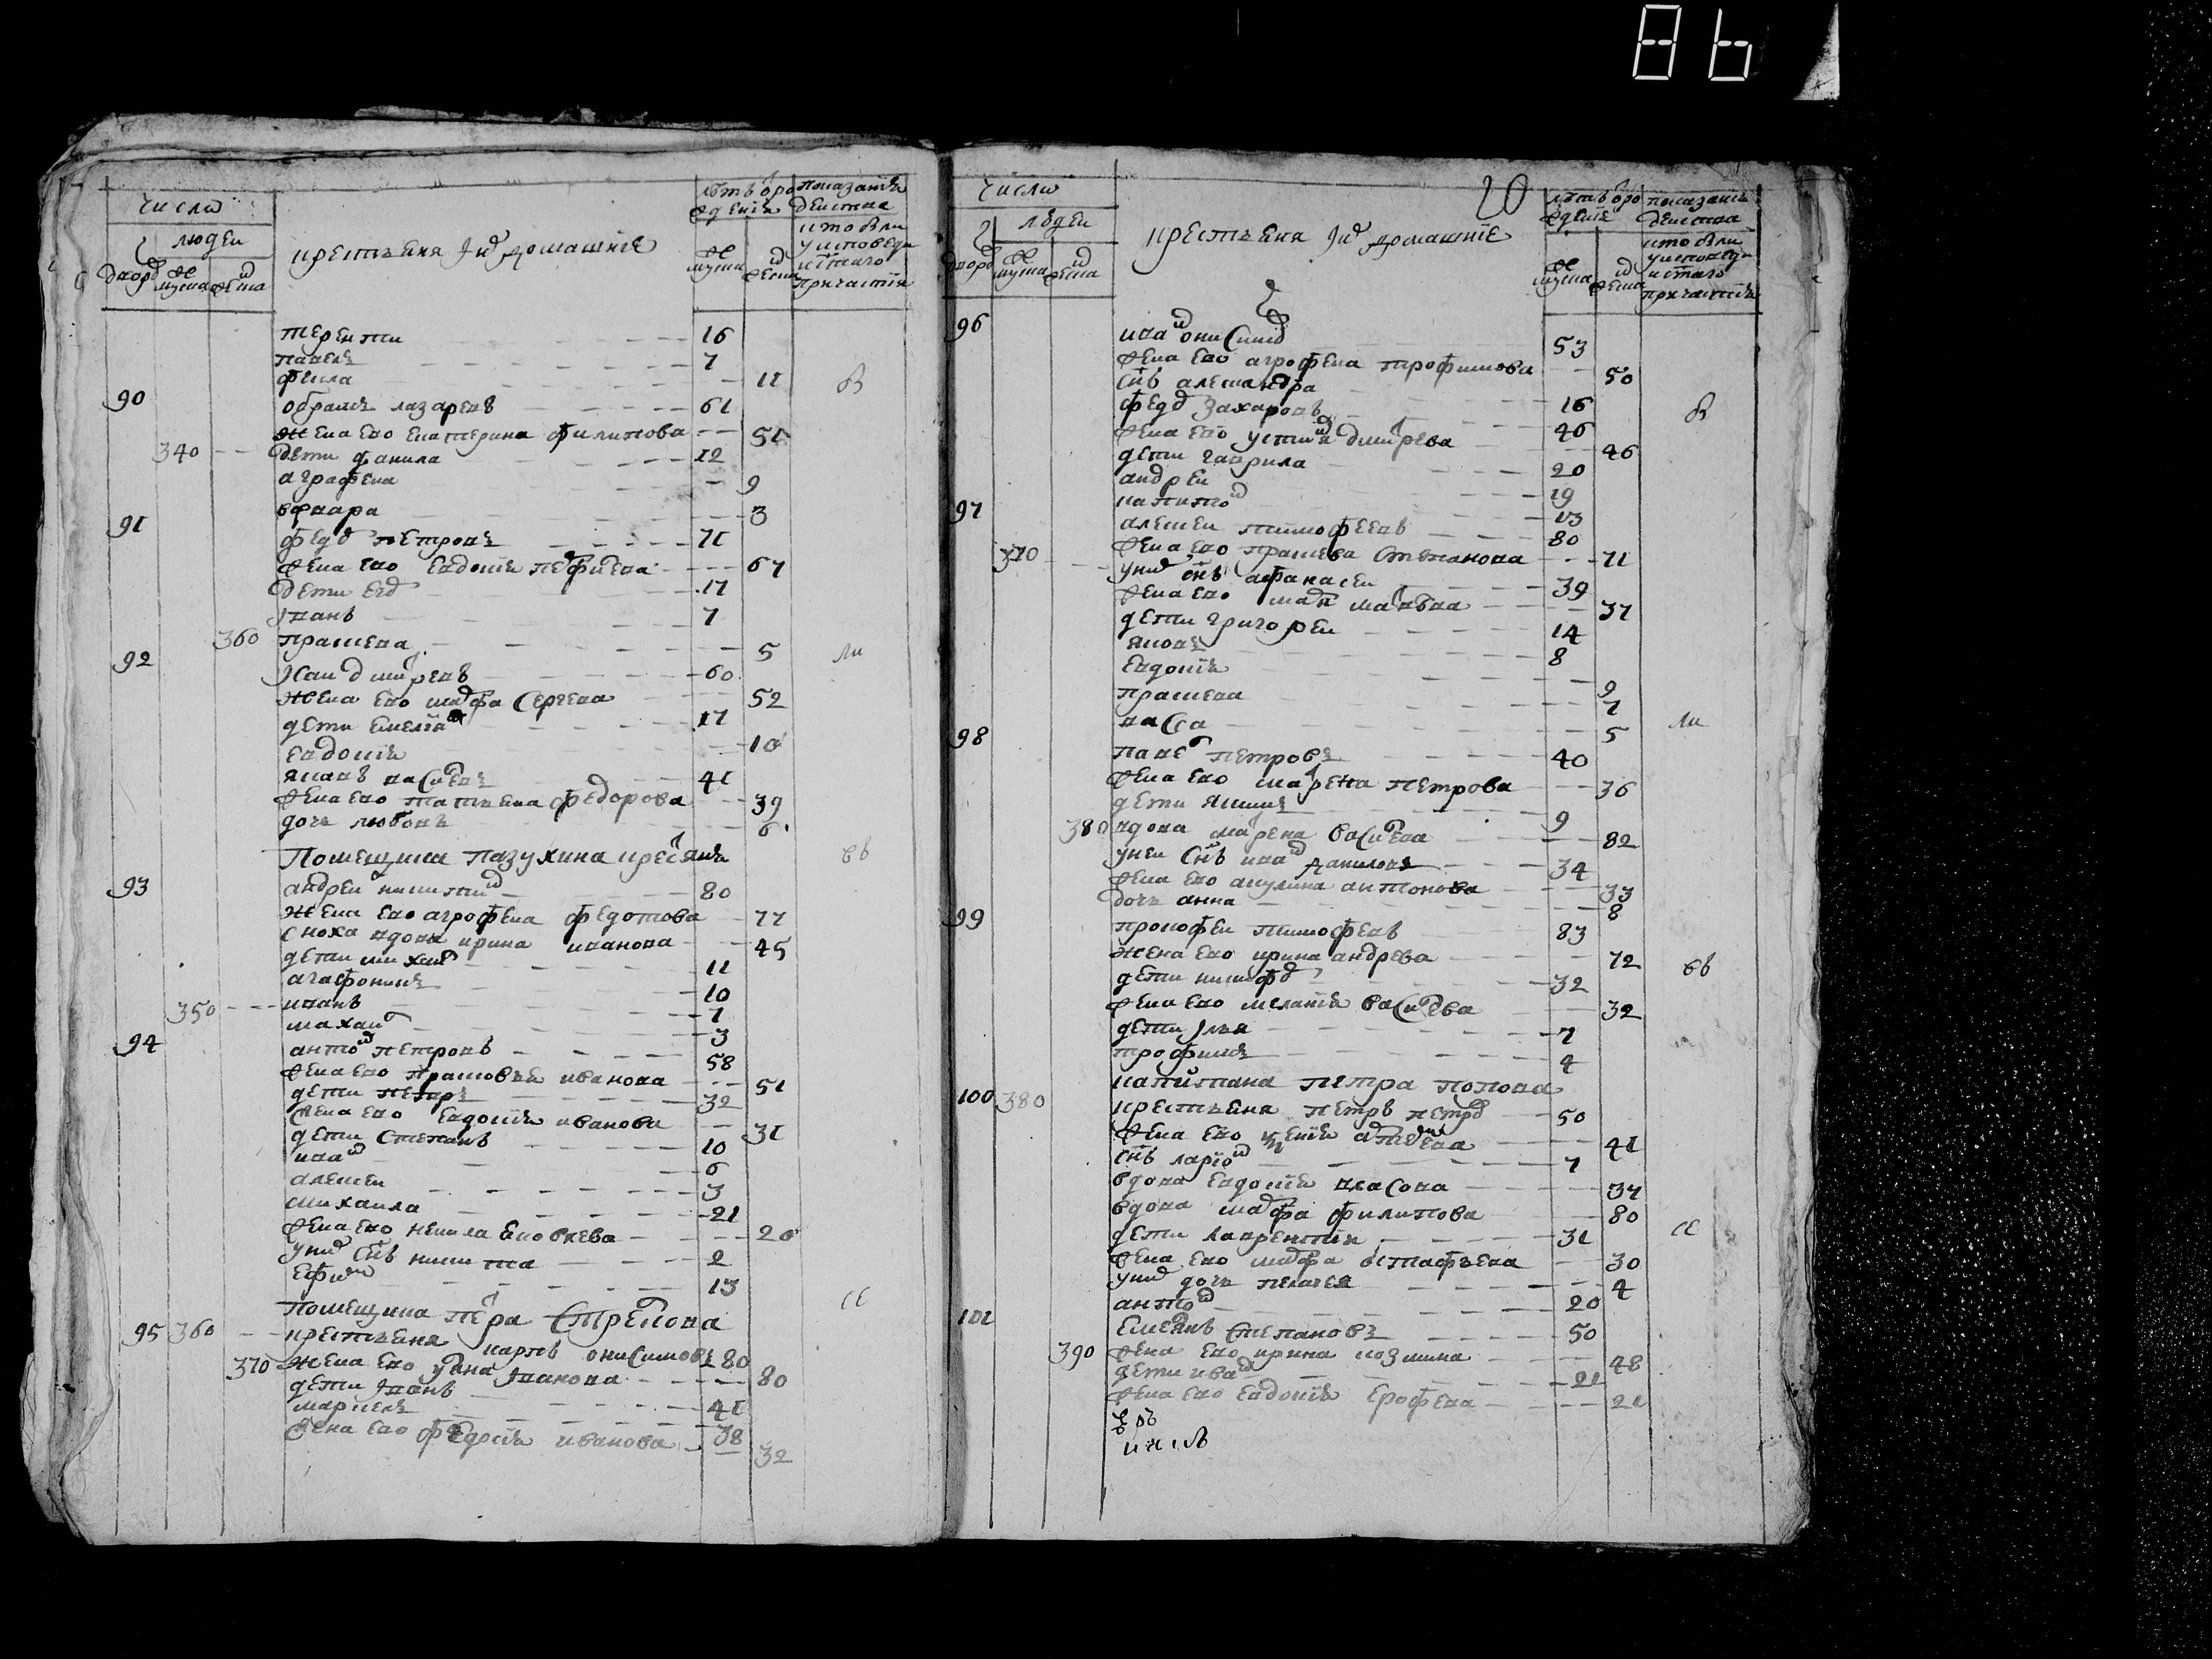 86
число
людеи
дворов мужска женска
крестьяня Ихъ домашние
лѣтъ врождения
мужска женска
показание действа кто былъ у исповеди и стаго причастия
терентии 16
павелъ 7
фекла 11
90 абрамъ лазаревъ 61
жена ево екатерина филипова 51
340 дети данила 12
аграфена 9
варвара 3
91 федоръ петровъ 71
жена ево евдокия 67
дети егоръ 17
Іванъ 7
360 прасковея 5
92 дмитревъ 60
жена ево марфа сергеева 52
дети емелиан 17
евдокия 10
яковъ василевъ 41
жена ево татьяна федорова 39
дочь любовь 6
Помещика пазухина кресьяня
93 андреи никитин 80
жена ево агрофена федотова 77
сноха вдова ирина иванова 45
дети михаил 11
агафоникъ 10
350 иванъ 7
михаил 3
94 антонъ петровъ 58
жена ево прасковья иванова 51
дети петръ 32
жена ево евдокия иванова 31
дети степанъ 10
иванъ 6
алексеи 3
михаила 21
жена ево яковлева 20
у них сынъ никита 2
ефимъ 13
Помещика петра
95 360 крестьяня карпъ онисимовъ 80
370 жена ево ульяна Іванова 80
дети Іванъ 41
маркелъ 38
жена ево федосия иванова 32
число 20
людеи
дворов мужска женска
крестьяня Ихъ домашние
лѣтъ врождение
мужска женска
показание действа кто былъ у исповеди и стаго причастия
96 иванъ онисимов 53
жена ево агрофена трофимова 50
сынъ александра 16
федоръ захаровъ 46
жена ево устинья дмитрева 46
дети гаврила 20
андреи 19
капитон 13
97 алексеи тимофеевъ 80
370 жена ево прасковя степанова 71
у них сынъ афанасеи 39
жена ево 37
дети григореи 14
яковъ 8
евдокия 9
прасковея 7
васса 5
98 павел петровъ 40
жена ево марена петрова 36
дети якимъ 9
380 вдова марена василева 82
у неи сынъ иванъ даниловъ 34
жена ево акулина антонова 33
дочь анна 8
99 прокофеи тимофеевъ 83
жена ево ирина андрева 72
дети никифор 32
жена ево мелания василева 32
дети Илья 7
трофимъ 4
капитана петра попова
100 380 крестьяня петръ петров 50
жена ево 41
сынъ ларион 7
вдова евдокия власова 37
вдова марфа филипова 80
дети лаврентии 31
жена ево марфа остафьева 30
у них дочь пелагея 4
антон 20
101 емелянъ степановъ 50
390 жена ево ирина козмина 48
дети иван 21
жена ево евдокия ерофеева 21